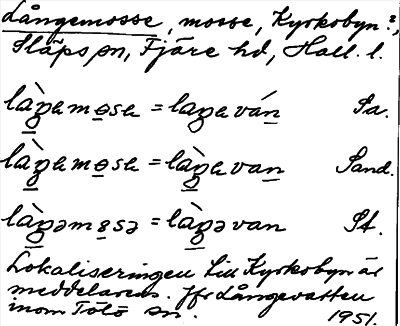 Långemosse, mosse, Kyrkobyn?,
Släps sn, Fjäre hd, Hall. l.
làŋamosa = laŋaván Sa.
làŋamosa = làŋavan Sand.
làŋəmosə = làŋəvan St.
Lokaliseringen till Kyrkobyn är
meddelarens. Jfr Långevatten
inom Tölö sn. 1951.